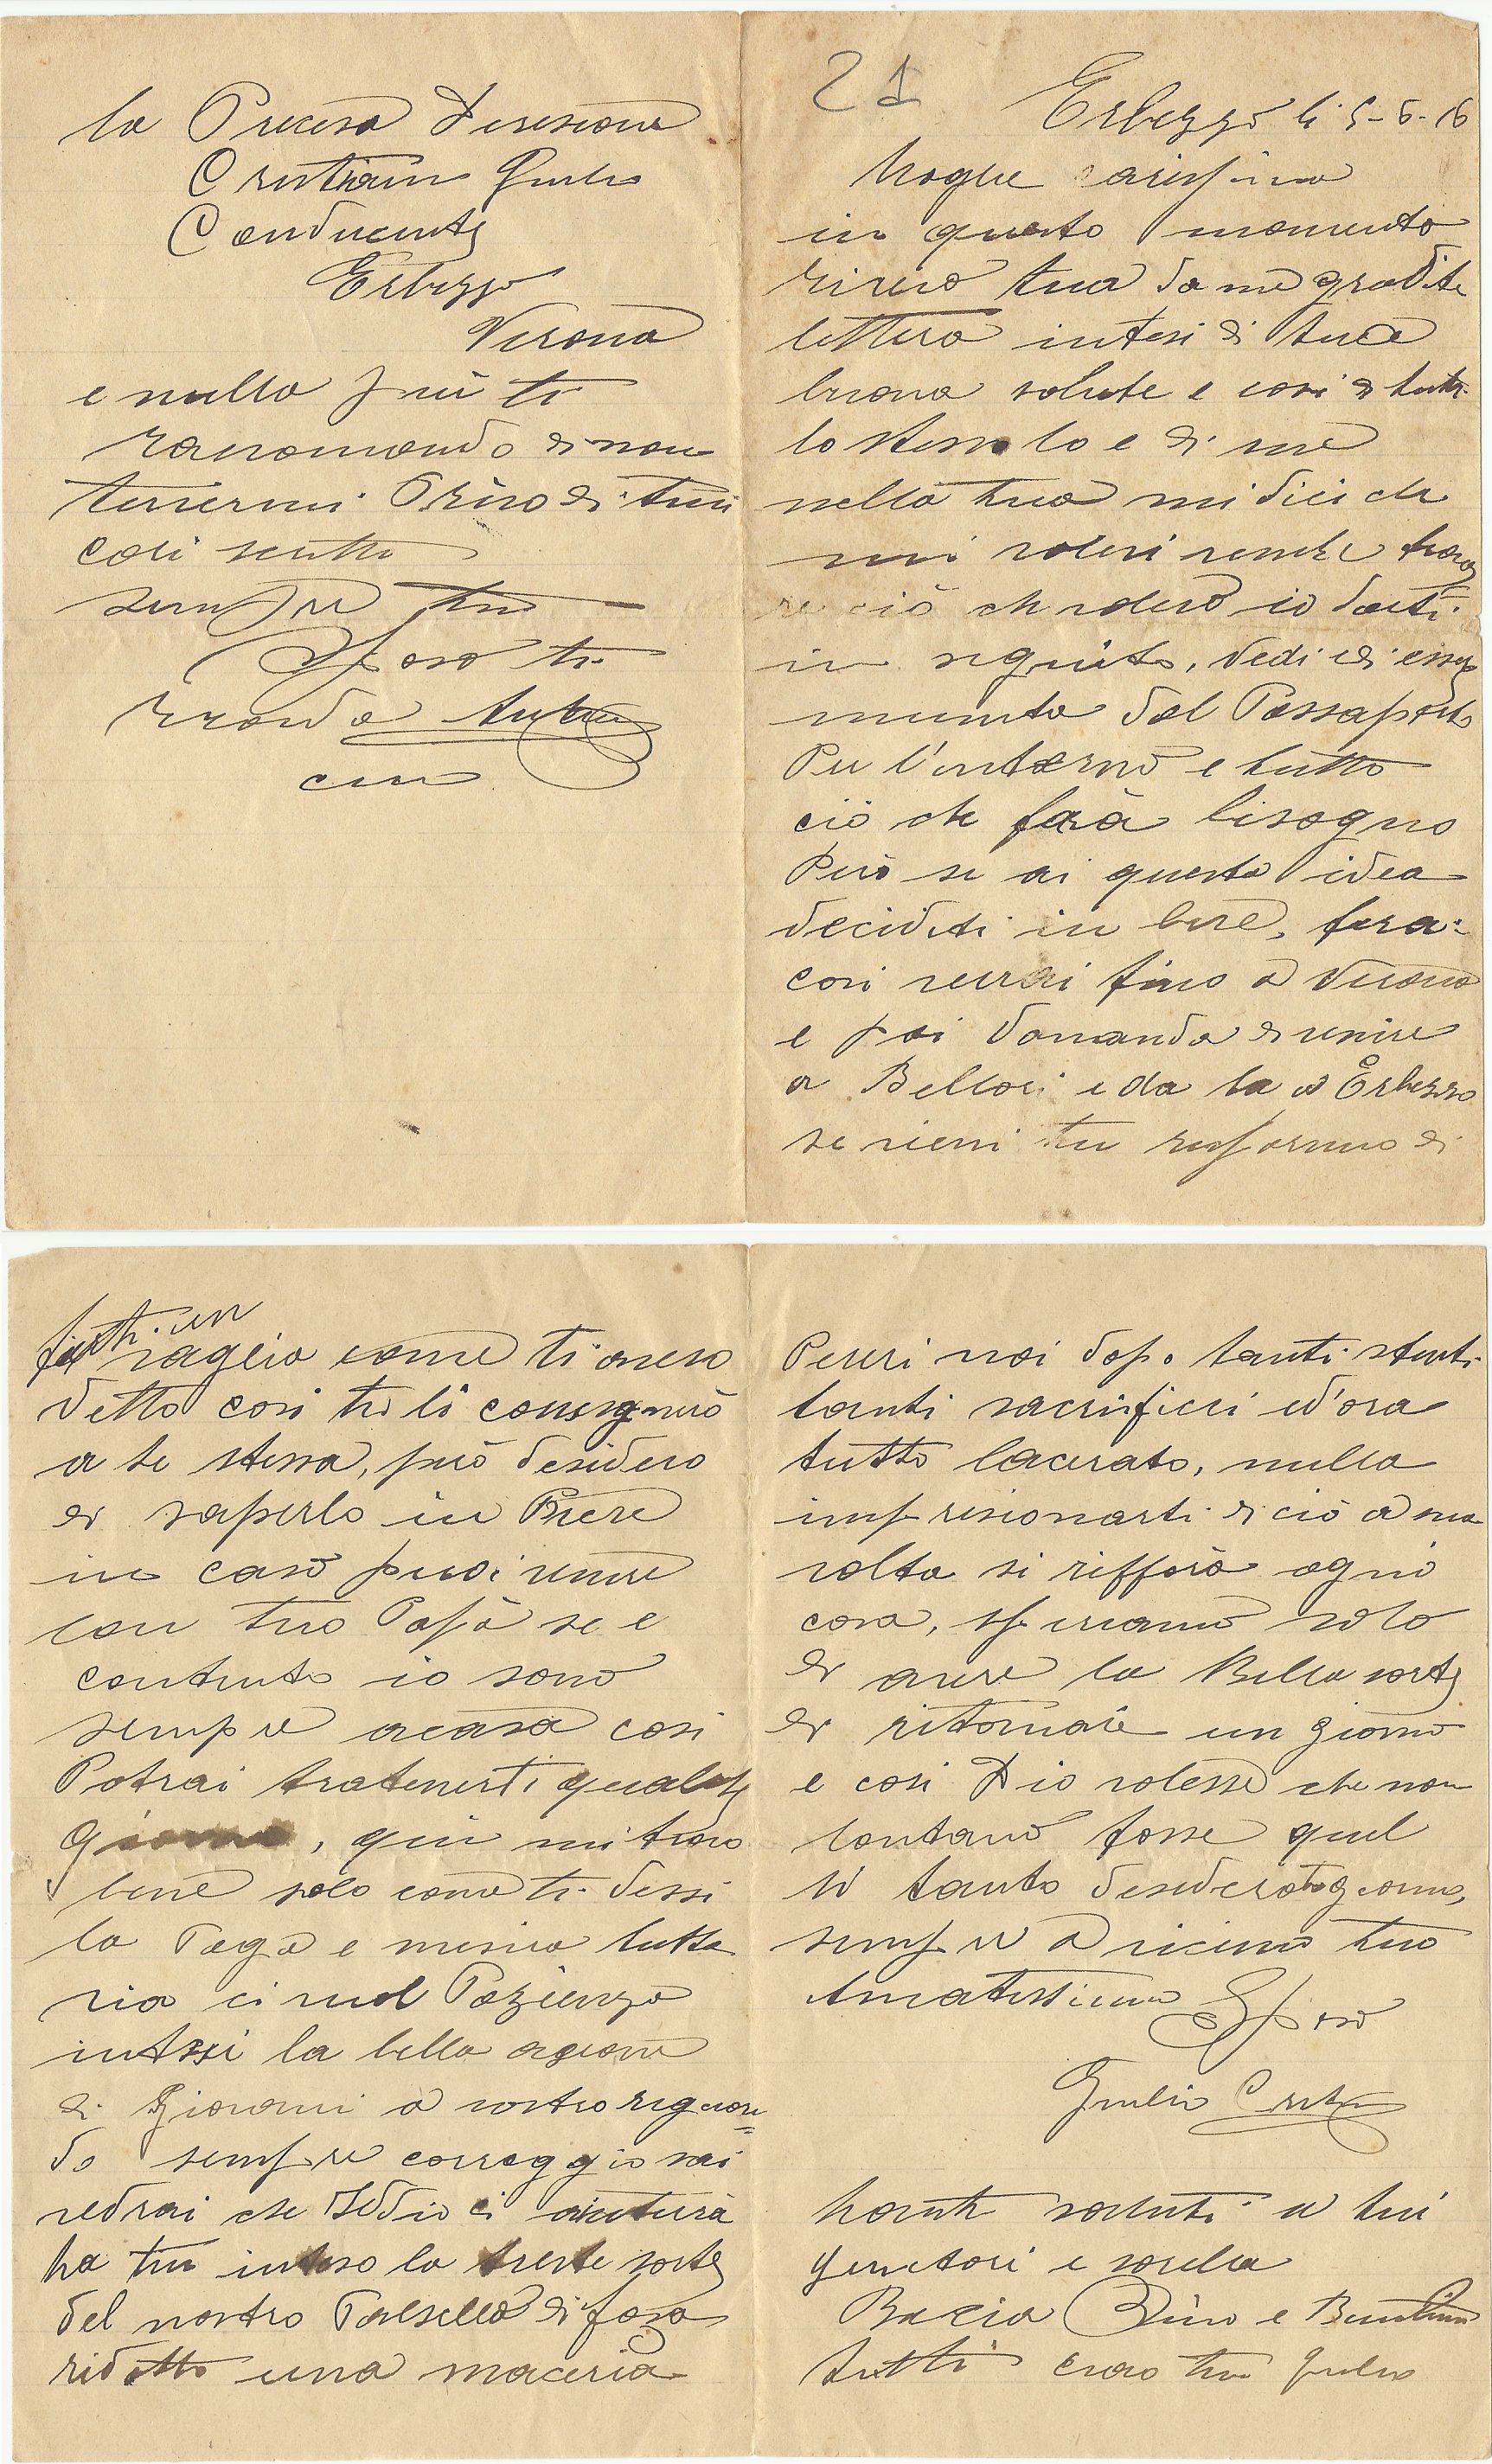 21
Erbezzo li 5-6-16
Moglie carissima
in questo momento
ricevo tua da me gradita
lettera intesi di tua
buona salute e cosi di tutti
lo stesso lo e di me
nella tua mi dici che
mi voleri
ciò che volevo io darti
in seguito, vedi di esser
munita del Passaporto
Per l'interno e tutto
ciò che farà bisogno
Però se ai questa idea
deciditi in bene, fara:
cosi verrai fino a Verona
e poi domanda di venire
a Bellori e da la a Erbezzo
se vieni tu risparmio di
farti un
vaglia come ti aveva
detto cosi te li consegnerò
a te stessa, però desidero
di saperlo in Breve
in caso puoi venire
con tuo Papà se e
contento io sono
sempre a casa cosi
Potrai tratenerti qualche
Giorno, qui mi trovo
bene solo come ti dissi
la Paga e misera tutta
via ci vuol Pazienza
intessi la bella azione
di Giovanni a vostro riguar=
do sempre corraggio sai
vedrai che Iddio ci aiuterà
ha tu inteso la triste sorte
del nostro Paesello di foza
ridotto una maceria
Poveri noi dopo tanti stenti
tanti sacrificci ed'ora
tutto lacerato, nulla
impresionarti di ciò a sua
volta si rifforà ogni
cosa, speriamo solo
di avere la Bella sorte
di ritornare un giorno
e cosi Dio volesse che non
lontano fosse quel
si tanto desiderato giorno,
sempre a vicino tuo
Amatissimo Sposo
Giulio Crist
tanti saluti a tuoi
genitori e sorella
Bacia Bino e
tutti ciao tuo Giulio
la Precisa Diresione
Cristiani Giulio
Conducente
Erbezzo
Verona
e nulla più ti
racomando di non
tenermi Privo di tuoi
cari scritti
sempre tuo
Sposo ti
ricorda
ciao